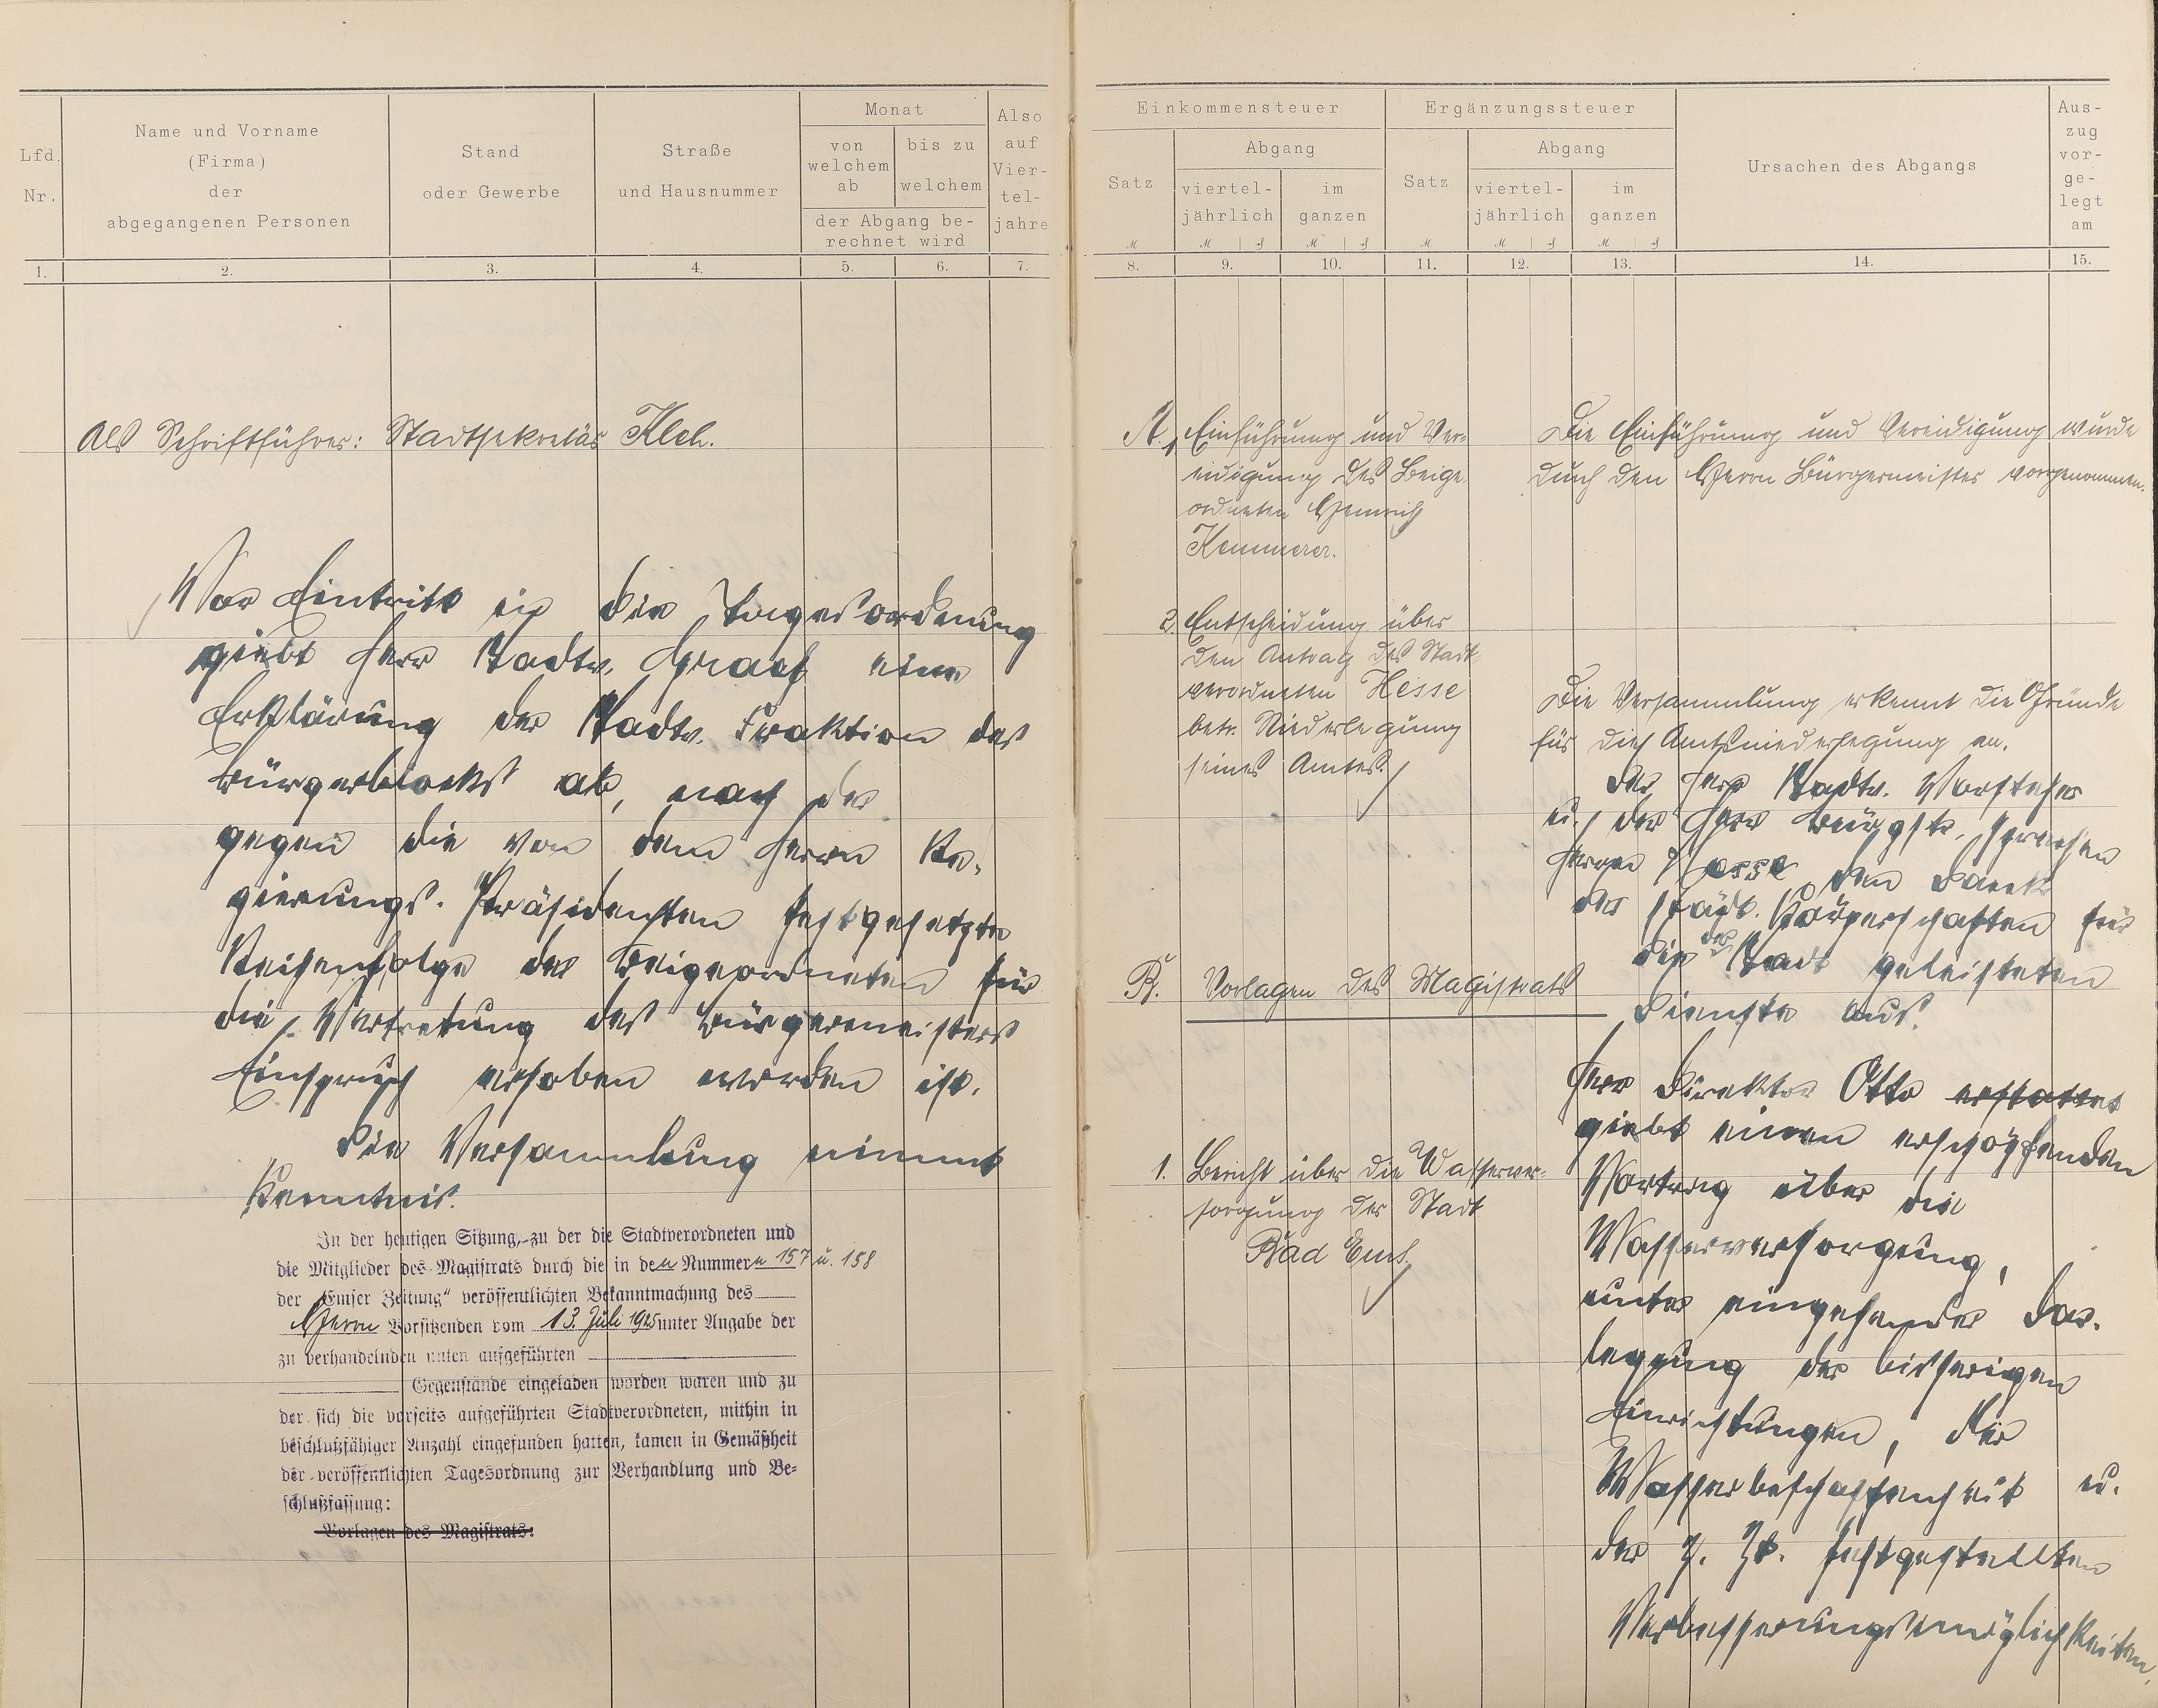 Lfd.
Nr.
Name und Vorname
(Firma)
der
abgegangenen Personen
Stand
oder Gewerbe
Straße
und Hausnummer
Monat
von
welchem
ab
bis zu
welchem
der Abgang be-
rechnet wird
Also
auf
Vier-
tel-
jahre
1. 2. 3. 4. 5. 6. 7.
Als Schriftführer: Stadtsekretär
Vor Eintritt in die Tagesordnung
giebt Herr Stadtv. Graef eine
Erklärung der Stadtv. Fraktion des
Bürgerblocks ab, nach der
gegen die von dem Herrn Re-
gierungs-Präsidenten festgesetzte
Reihenfolge der Beigeordneten für
die Vertretung des Bürgermeisters
Einspruch erhoben worden ist.
Die Versammlung nimmt
Kenntnis.
In der heutigen Sitzung, zu der die Stadtverordneten und
die Mitglieder des Magistrats durch die in den Nummern 157 u. 158
der „Emser Zeitung" veröffentlichten Bekanntmachung des
Herrn Vorsitzenden vom 13. Juli 1925 unter Angabe der
zu verhandelnden unten aufgeführten
Gegenstände eingeladen worden waren und zu
der sich die vorseits aufgeführten Stadtverordneten, mithin in
beschlußfähiger Anzahl eingefunden hatten, kamen in Gemäßheit
der veröffentlichten Tagesordnung zur Verhandlung und Be-
schlußfassung:
Vorlagen des Magistrats:
Einkommensteuer
Satz
Abgang
viertel-
jährlich
im
ganzen
Ergänzungssteuer
Satz
Abgang
viertel-
jährlich
im
ganzen
Ursachen des Abgangs
Aus-
zug
vor-
ge-
legt
am
M M ₰ M ₰ M M ₰ M ₰
8. 9. 10. 11. 12. 13. 14. 15.
A. 1. Einführung und Ver-
eidigung des Beige-
ordneten Heinrich
Kemmerer.
Die Einführung und Vereidigung wurde
durch den Herrn Bürgermeister vorgenommen.
2. Entscheidung über
den Antrag des Stadt-
verordneten Hesse
betr. Niederlegung
seines Amtes.
Die Versammlung erkennt die Gründe
für die Amtsniederlegung an.
Der Herr Stadtv. Vorsteher
u. der Herr Bürgstr. sprechen
Herrn Hesse den Dank
der städt. Körperschaften für
die der Stadt geleisteten
Dienste aus.
B. Vorlagen des Magistrats
1. Bericht über die Wasserver-
sorgung der Stadt
Bad Ems.
Herr Direktor Otto erstattet
giebt einen erschöpfenden
Vortrag über die
Wasserversorgung,
unter eingehender Dar-
legung der bisherigen
Einrichtungen, der
Wasserbeschaffenheit u.
der z. Zt. festgestellten
Verbesserungsmöglichkeiten,